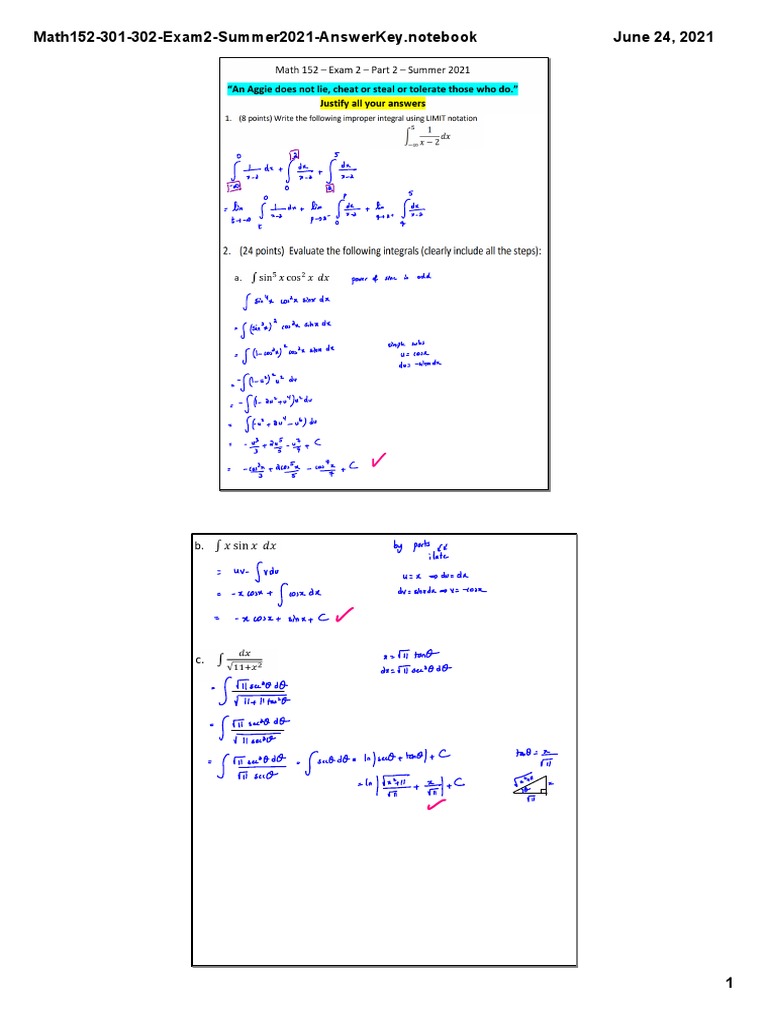 Math152-301-302-Exam2-Summer2021-AnswerKey.notebook
June 24, 2021
Math 152 – Exam 2 – Part 2 – Summer 2021
“An Aggie does not lie, cheat or steal or tolerate those who do.”
Justify all your answers
1. (8 points) Write the following improper integral using LIMIT notation
∫_{-∞}^{5} 1/(x − 2) dx
∫_{-∞}^{0} 1/(x-2) dx + ∫_{0}^{2} dx/(x-2) + ∫_{2}^{5} dx/(x-2)
= lim_{t→-∞} ∫_{t}^{0} 1/(x-2) dx + lim_{p→2⁻} ∫_{0}^{p} dx/(x-2) + lim_{q→2⁺} ∫_{q}^{5} dx/(x-2)
2. (24 points) Evaluate the following integrals (clearly include all the steps):
a. ∫ sin⁵ x cos² x dx power of sine is odd
∫ sin⁴x cos²x sinx dx
= ∫ (sin²x)² cos²x sinx dx
= ∫ (1-cos²x)² cos²x sinx dx
u = cosx
du = -sinx dx
= -∫ (1-u²)² u² du
= -∫ (1- 2u² + u⁴) u² du
= ∫ (-u² + 2u⁴ - u⁶) du
= -u³/3 + 2u⁵/5 - u⁷/7 + C
= -cos³x/3 + 2cos⁵x/5 - cos⁷x/7 + C ✓
b. ∫ x sin x dx by parts
ilate
= uv- ∫ v du
u = x ⇒ du = dx
= -x cosx + ∫ cosx dx
dv = sinx dx ⇒ v = -cosx
= -x cosx + sinx + C ✓
c. ∫ dx/√(11+x²)
x = √11 tanθ
dx = √11 sec²θ dθ
= ∫ √11 sec²θ dθ/√(11 + 11 tan²θ)
= ∫ √11 sec²θ dθ/√(11 sec²θ)
= ∫ √11 sec²θ dθ/(√11 secθ) = ∫ secθ dθ = ln|secθ + tanθ| + C
tanθ = x/√11
= ln |√(x²+11)/√11 + x/√11| + C ✓
√(x²+11) x
θ
√11
1